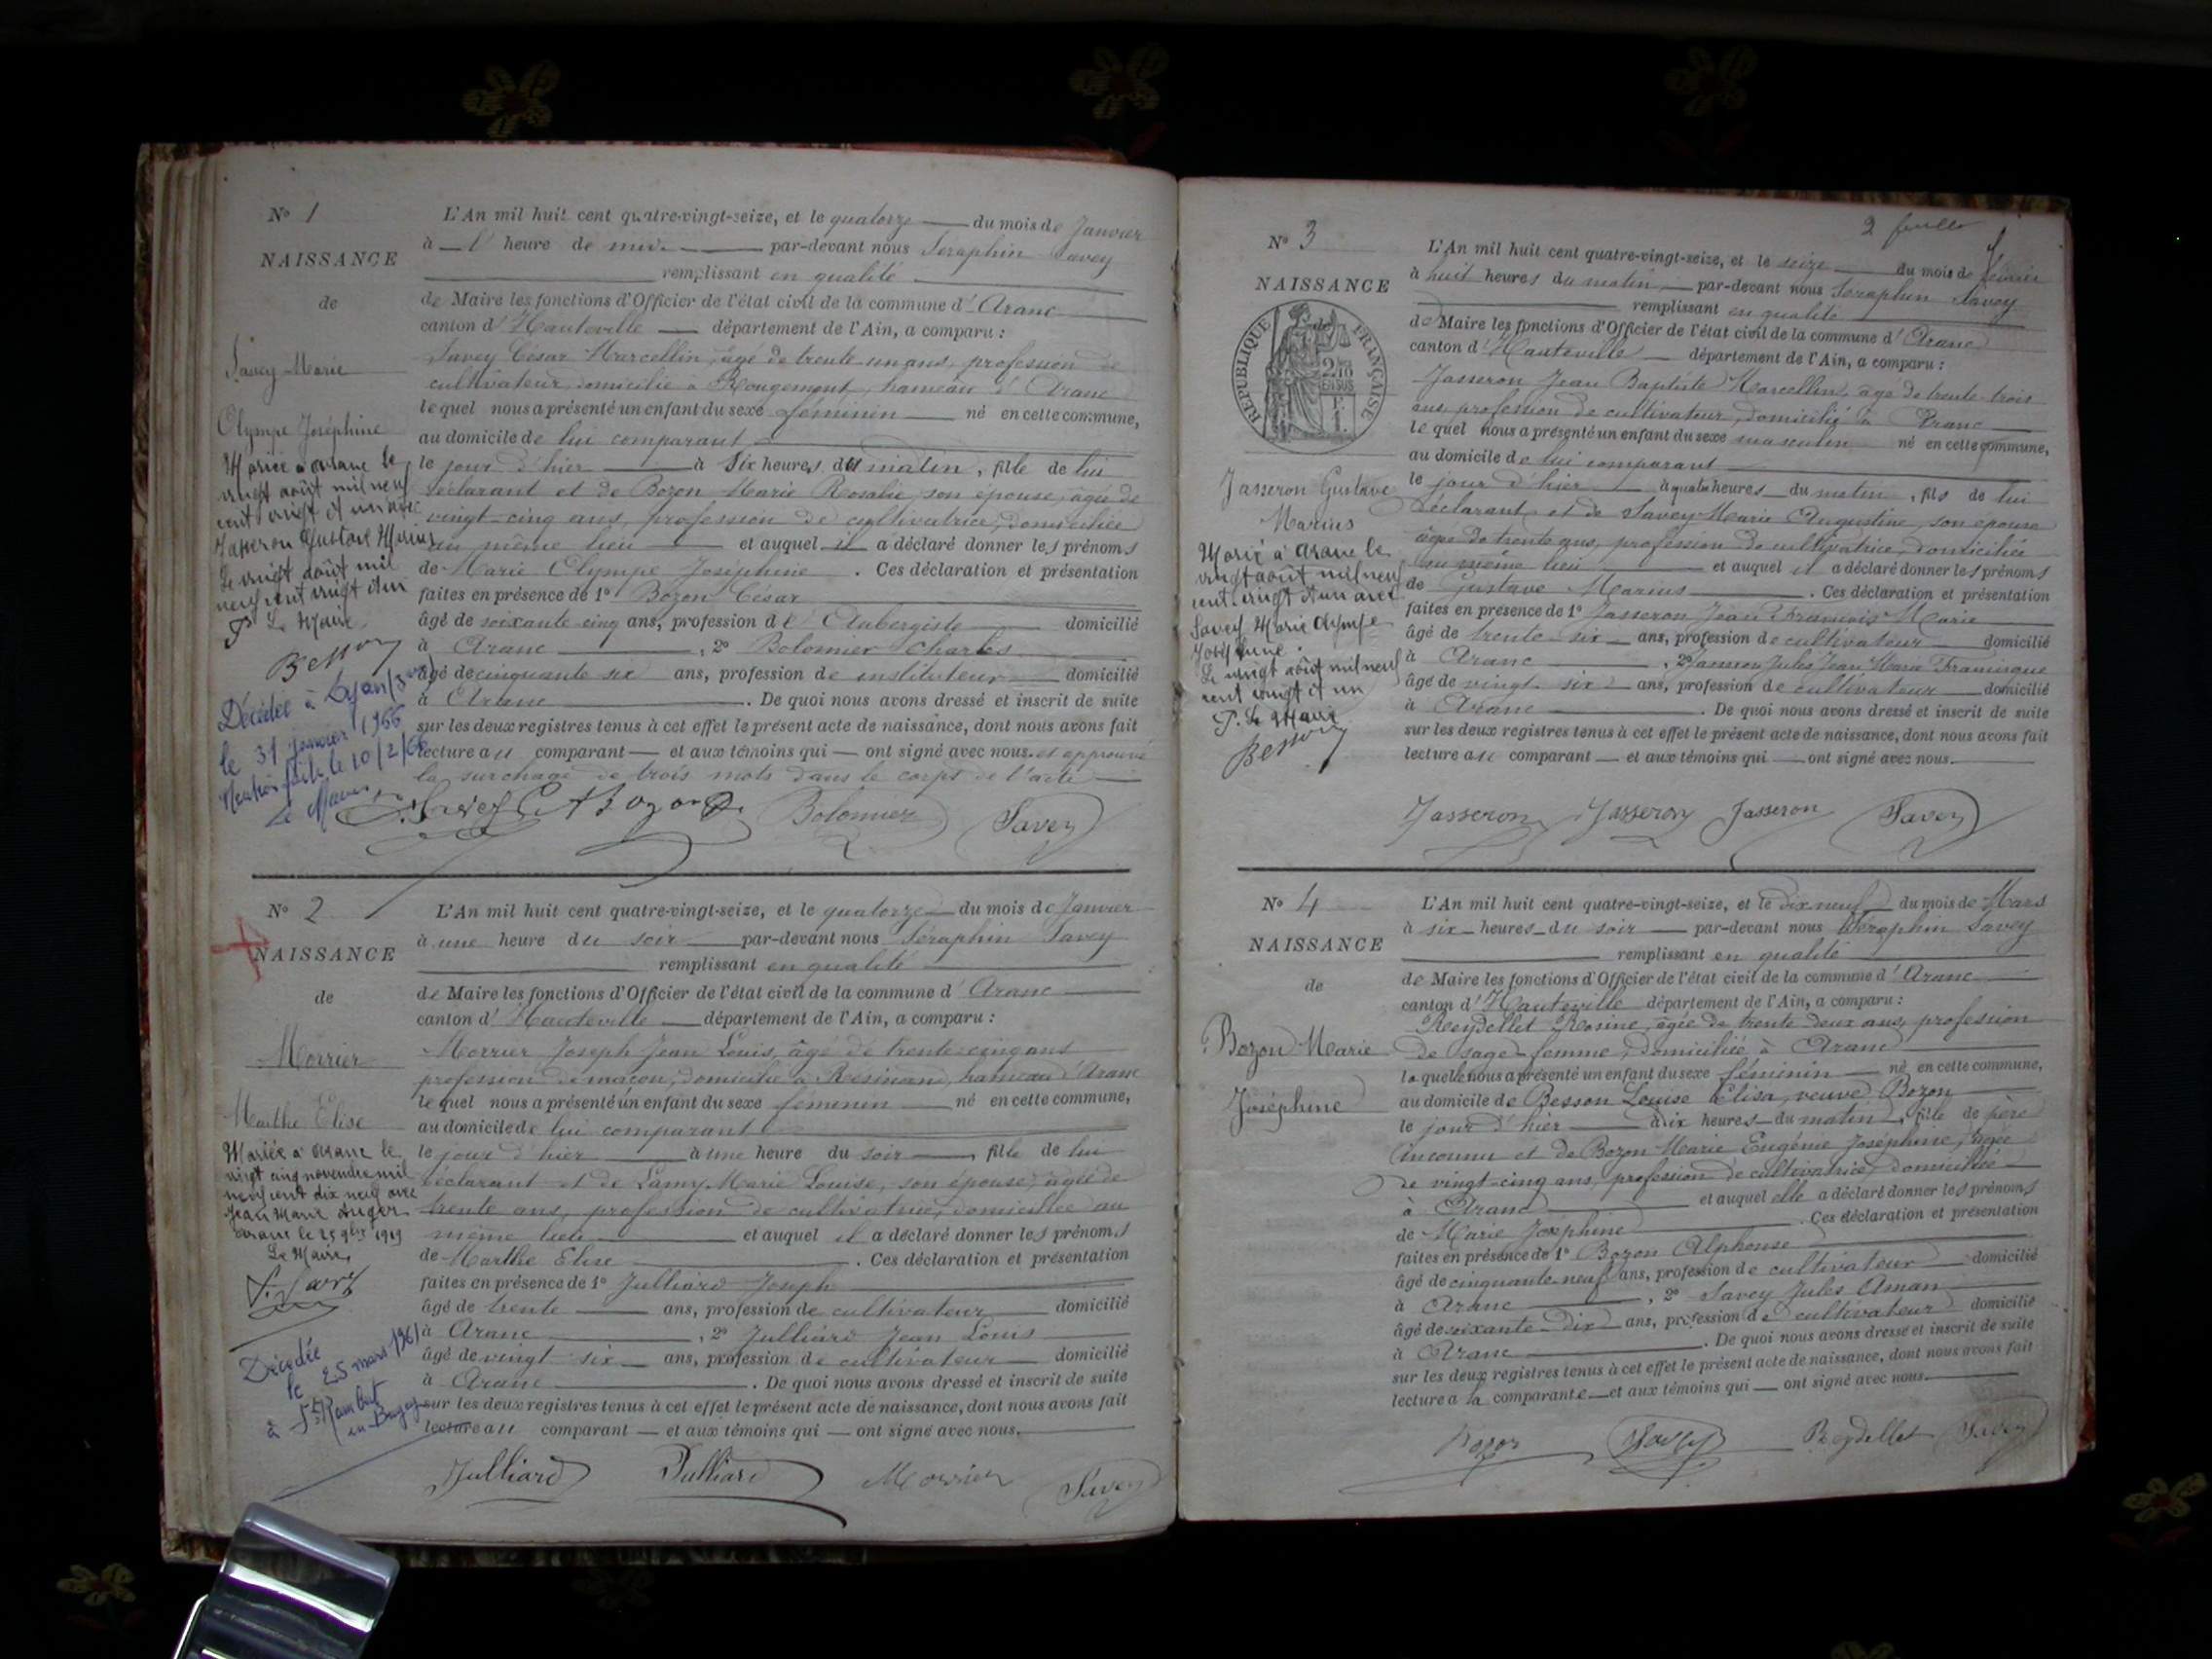 N° 1
NAISSANCE
de
Savey Marie
Olympe Joséphine
Mariée à Aranc le
vingt août mil neuf
cent vingt et un avec
Jasseron Gustave Marius
Le vingt août mil
neuf cent vingt et un
P. Le Maire
Besson
Décédée à Lyon (3
le 31 janvier 1966
Mention faite le 10/2/66
Le Maire
L'An mil huit cent quatre-vingt-seize, et le quatorze du mois de Janvier
à l' heure de midi par-devant nous Séraphin Savey
remplissant en qualité
de Maire les fonctions d'Officier de l'état civil de la commune d' Aranc
canton d' Hauteville département de l'Ain, a comparu :
Savey César Marcellin, âgé de trente un ans, profession de
cultivateur, domicilié à Rougemont, hameau d' Aranc
le quel nous a présenté un enfant du sexe féminin né en cette commune,
au domicile de lui comparant
le jour d'hier à Six heures du matin, fille de lui
déclarant et de Bozon Marie Rosalie, son épouse, âgée de
vingt-cinq ans, profession de cultivatrice, domiciliée
au même lieu et auquel il a déclaré donner les prénoms
de Marie Olympe Joséphine . Ces déclaration et présentation
faites en présence de 1° Bozon César
âgé de soixante cinq ans, profession d' Aubergiste domicilié
à Aranc , 2° Bolomier Charles
âgé de cinquante six ans, profession de instituteur domicilié
à Aranc . De quoi nous avons dressé et inscrit de suite
sur les deux registres tenus à cet effet le présent acte de naissance, dont nous avons fait
lecture au comparant et aux témoins qui ont signé avec nous. et approuvé
la surchage de trois mots dans le corps de l'acte
Savey C. Bozon Bolomier Savey
N° 2
NAISSANCE
de
Morrier
Marthe Elise
Mariée à Aranc le
vingt cinq novembre mil
neuf cent dix neuf avec
Jean Marie Auger
Aranc le 25 9bre 1919
Le Maire
S. Savey
Décédée
le 25 mars 1961
à St Rambert
en-Bugey
L'An mil huit cent quatre-vingt-seize, et le quatorze du mois de Janvier
à une heure du soir par-devant nous Séraphin Savey
remplissant en qualité
de Maire les fonctions d'Officier de l'état civil de la commune d' Aranc
canton d' Hauteville département de l'Ain, a comparu :
Morrier Joseph Jean Louis, âgé de trente-cinq ans
profession de maçon, domicilié à Résinand, hameau d'Aranc
le quel nous a présenté un enfant du sexe féminin né en cette commune,
au domicile de lui comparant
le jour d'hier à une heure du soir, fille de lui
déclarant et de Lamy Marie Louise, son épouse, âgée de
trente ans, profession de cultivatrice, domiciliée au
même lieu et auquel il a déclaré donner les prénoms
de Marthe Elise . Ces déclaration et présentation
faites en présence de 1° Julliard Joseph
âgé de trente ans, profession de cultivateur domicilié
à Aranc , 2° Julliard Jean Louis
âgé de vingt six ans, profession de cultivateur domicilié
à Aranc . De quoi nous avons dressé et inscrit de suite
sur les deux registres tenus à cet effet le présent acte de naissance, dont nous avons fait
lecture au comparant et aux témoins qui ont signé avec nous.
Julliard Julliard Morrier Savey
2 feuille
N° 3
NAISSANCE
de
RÉPUBLIQUE FRANÇAISE
2/10 EN SUS
Jasseron Gustave
Marius
Marié à Aranc le
vingt août mil neuf
cent vingt et un avec
Savey Marie Olympe
Joséphine.
Le vingt août mil neuf
cent vingt et un
P. Le Maire
Besson
L'An mil huit cent quatre-vingt-seize, et le seize du mois de février
à huit heures du matin, par-devant nous Séraphin Savey
remplissant en qualité
de Maire les fonctions d'Officier de l'état civil de la commune d' Aranc
canton d' Hauteville département de l'Ain, a comparu :
Jasseron Jean Baptiste Marcellin, âgé de trente-trois
ans, profession de cultivateur, domicilié à Aranc
le quel nous a présenté un enfant du sexe masculin né en cette commune,
au domicile de lui comparant
le jour d'hier à quatre heures du matin, fils de lui
déclarant et de Savey Marie Augustine, son épouse
âgée de trente ans, profession de cultivatrice, domiciliée
au même lieu et auquel il a déclaré donner les prénoms
de Gustave Marius . Ces déclaration et présentation
faites en présence de 1° Jasseron Jean François Marie
âgé de trente six ans, profession de cultivateur domicilié
à Aranc , 2° Jasseron Jules Jean Marie
âgé de vingt six ans, profession de cultivateur domicilié
à Aranc . De quoi nous avons dressé et inscrit de suite
sur les deux registres tenus à cet effet le présent acte de naissance, dont nous avons fait
lecture au comparant et aux témoins qui ont signé avec nous.
Jasseron Jasseron Jasseron Savey
N° 4
NAISSANCE
de
Bozon Marie
Joséphine
L'An mil huit cent quatre-vingt-seize, et le dix neuf du mois de Mars
à six heures du soir par-devant nous Séraphin Savey
remplissant en qualité
de Maire les fonctions d'Officier de l'état civil de la commune d' Aranc
canton d' Hauteville département de l'Ain, a comparu :
Reydellet Rosine, âgée de trente deux ans, profession
de sage-femme, domiciliée à Aranc
la quelle nous a présenté un enfant du sexe féminin né en cette commune,
au domicile de Besson Louise Elisa, veuve Bozon
le jour d'hier à dix heures du matin, fille de père
inconnu et de Bozon Marie Eugénie Joséphine, âgée
de vingt-cinq ans, profession de cultivatrice, domiciliée
à Aranc et auquel elle a déclaré donner les prénoms
de Marie Joséphine . Ces déclaration et présentation
faites en présence de 1° Bozon Alphonse
âgé de cinquante-neuf ans, profession de cultivateur domicilié
à Aranc , 2° Savey Jules Aman
âgé de soixante-dix ans, profession de cultivateur domicilié
à Aranc . De quoi nous avons dressé et inscrit de suite
sur les deux registres tenus à cet effet le présent acte de naissance, dont nous avons fait
lecture a la comparante et aux témoins qui ont signé avec nous.
Bozon Savey Reydellet Savey